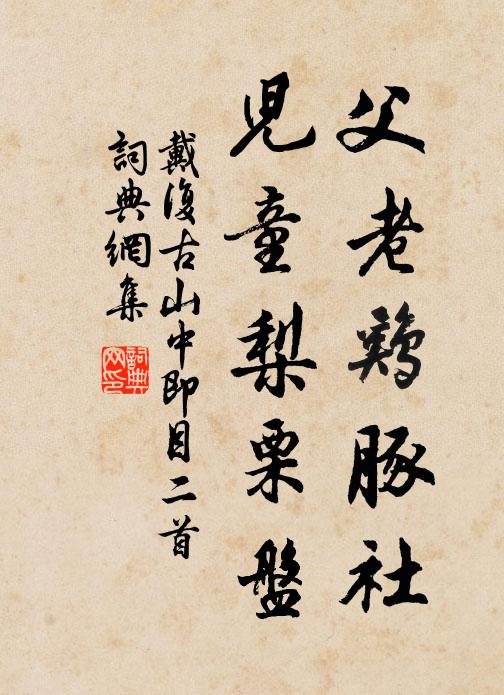 父老鷄豚社
兒童梨栗盤
戴復古山中即目二首
詞典網集
詞典網印